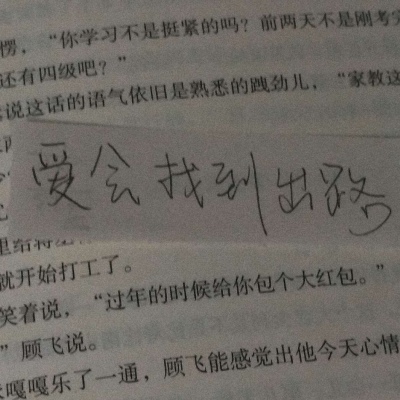 愣，“你学习不是挺紧的吗？前两天不是刚考完
还有四级吧？”
说这话的语气依旧是熟悉的跩劲儿，“家教这
爱会找到出路
里给
就开始打工了。
笑着说，“过年的时候给你包个大红包。”
”顾飞说。
嘎嘎乐了一通，顾飞能感觉出他今天心情